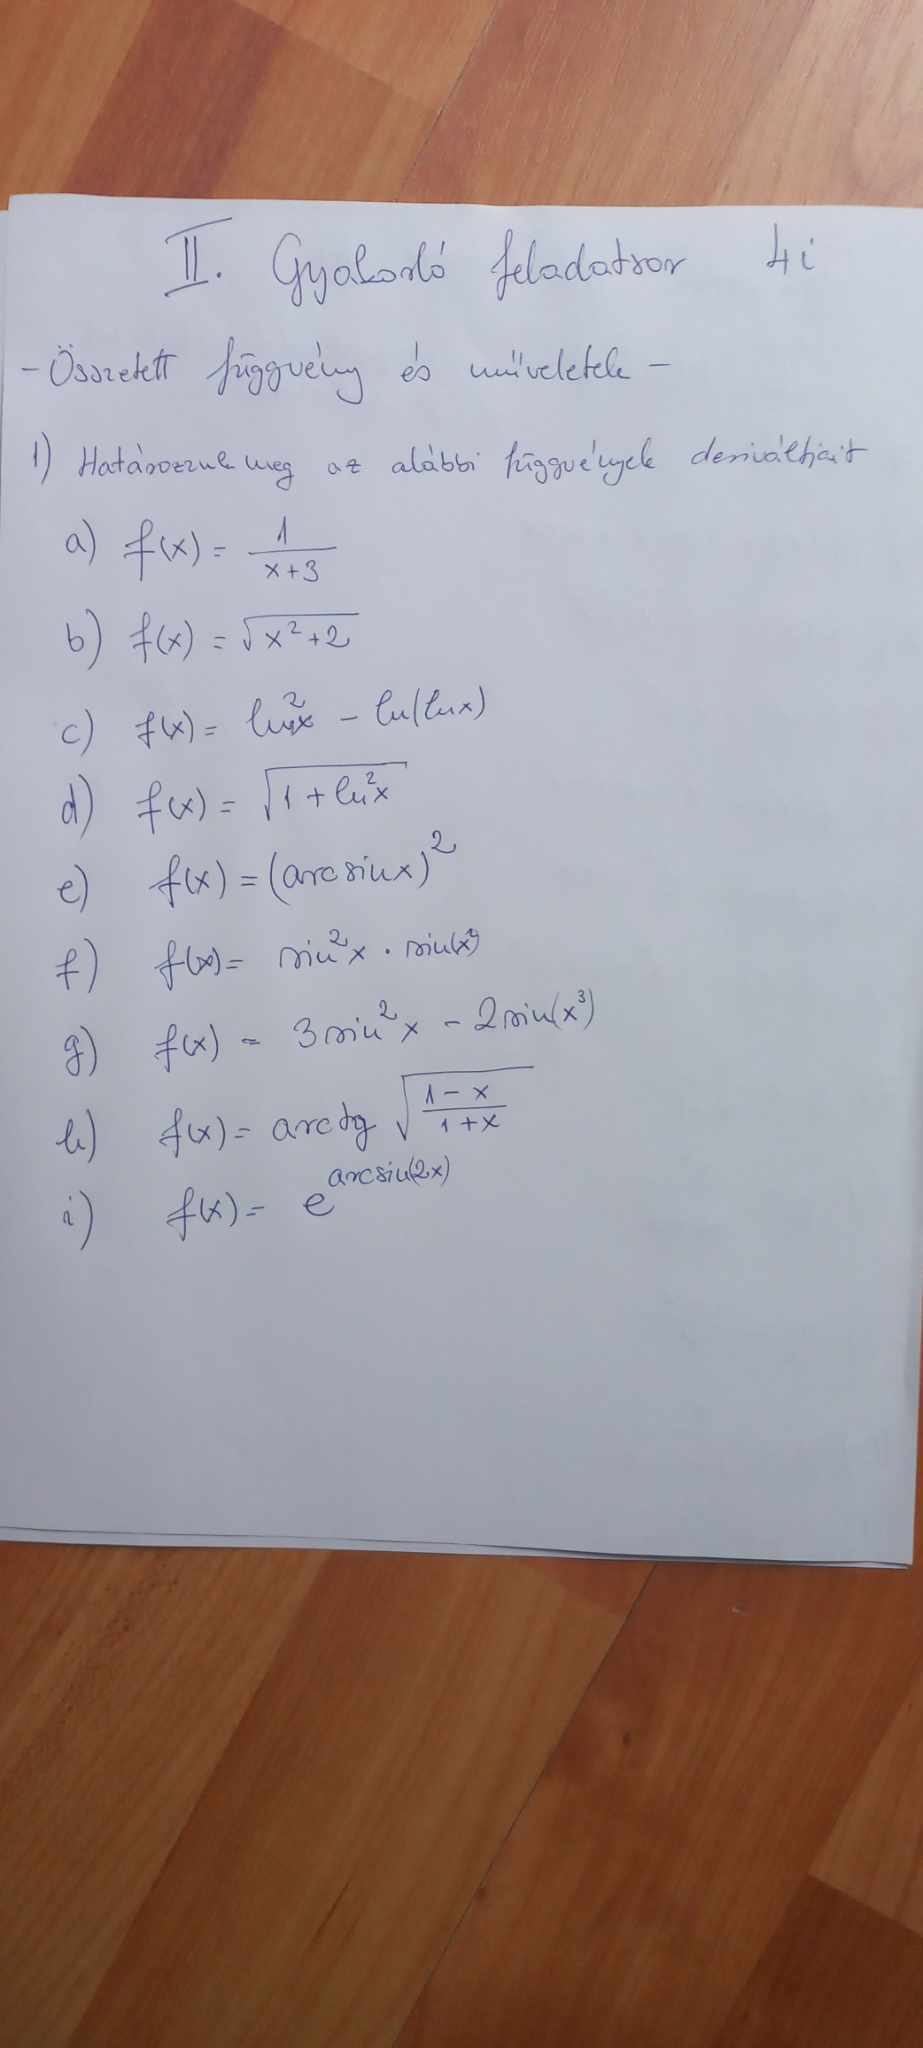 II. Gyakorló feladatsor 4i
- Összetett függvény és műveletek -
1) Határozzuk meg az alábbi függvények deriváltjait
a) f(x) = 1/(x+3)
b) f(x) = √(x²+2)
c) f(x) = ln²x - ln(lnx)
d) f(x) = √(1 + ln²x)
e) f(x) = (arcsinx)²
f) f(x) = sin²x · sin(x²)
g) f(x) = 3sin²x - 2sin(x³)
h) f(x) = arctg √((1-x)/(1+x))
i) f(x) = e^(arcsin(2x))